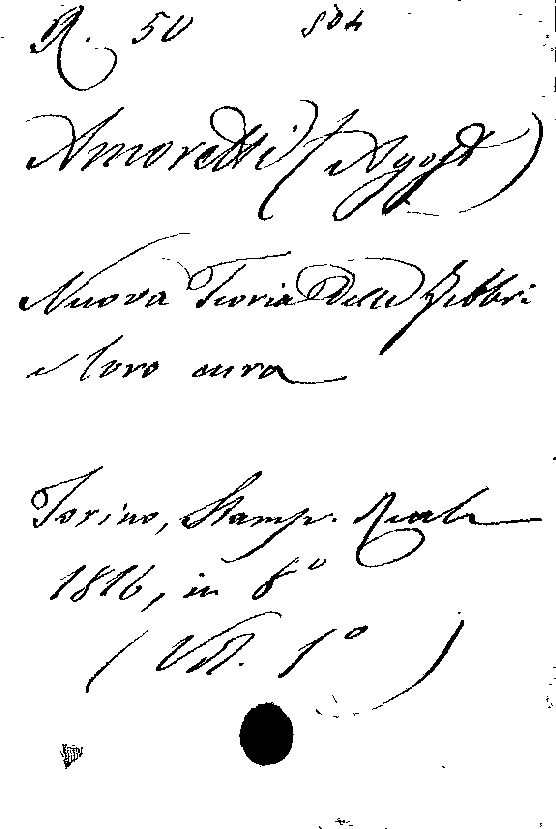 R. 50 504
Amoretti (Agost)
Nuova Teoria Delle Febbri
e loro cura
Torino, Stamp. Reale
1816, in 8º
(Vol. 1º)